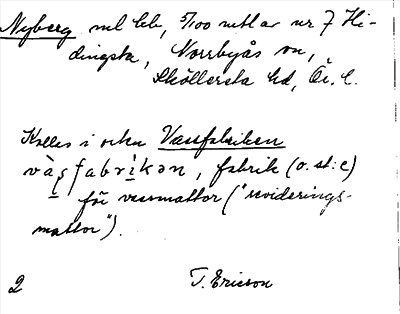 Nyberg ml leb, 5/100 mtl av nr 7 Hi-
dingsta, Norrbyås sn,
Sköllersta hd, Ör. l.
Kallas i orten Vassfabriken
fabrik (o. st: e)
för vassmattor ("revideringsmattor").
2 T. Ericson